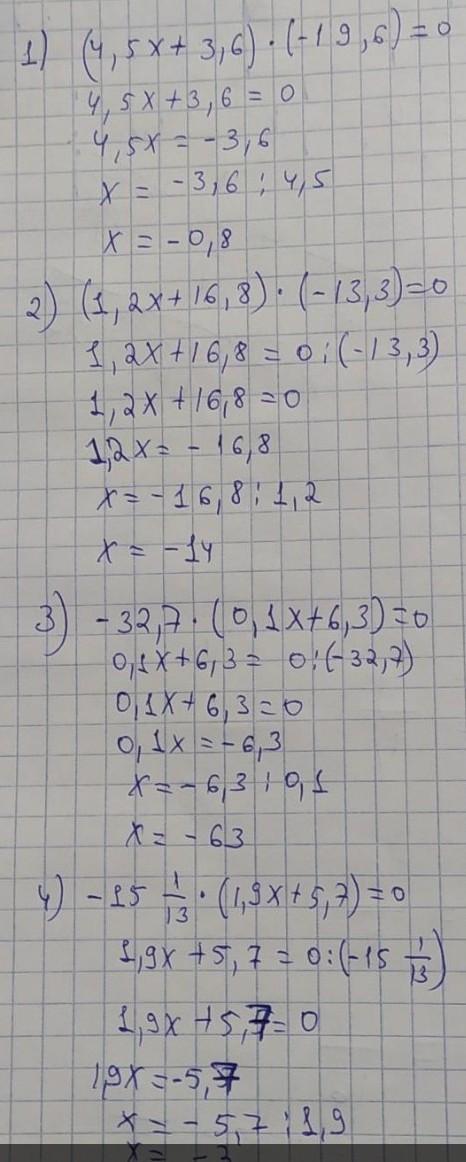 1) (4,5x + 3,6) · (-19,6) = 0
4,5x + 3,6 = 0
4,5x = -3,6
x = -3,6 : 4,5
x = -0,8
2) (1,2x + 16,8) · (-13,3) = 0
1,2x + 16,8 = 0 : (-13,3)
1,2x + 16,8 = 0
1,2x = - 16,8
x = -16,8 : 1,2
x = -14
3) -32,7 · (0,1x + 6,3) = 0
0,1x + 6,3 = 0 : (-32,7)
0,1x + 6,3 = 0
0,1x = -6,3
x = -6,3 : 0,1
x = -63
4) -15 1/13 · (1,9x + 5,7) = 0
1,9x + 5,7 = 0 : (-15 1/13)
1,9x + 5,7 = 0
1,9x = -5,7
x = -5,7 : 1,9
x = -3